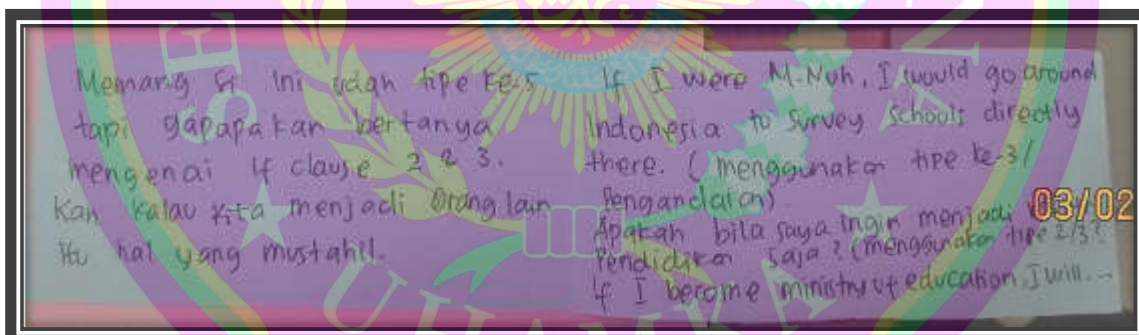 Memang ini udah tipe ke-5
tapi gapapa kan bertanya
mengenai If clause 2 & 3.
Kan kalau kita menjadi orang lain
itu hal yang mustahil.
If I were M.Nuh, I would go around
Indonesia to survey schools directly
there. (menggunakan tipe ke-3/
Pengandaian).
Apakah bila saya ingin menjadi
Pendidikan saja? (menggunakan tipe 2/3?
If I become ministry of education, I will...
03/02
UHAMKA